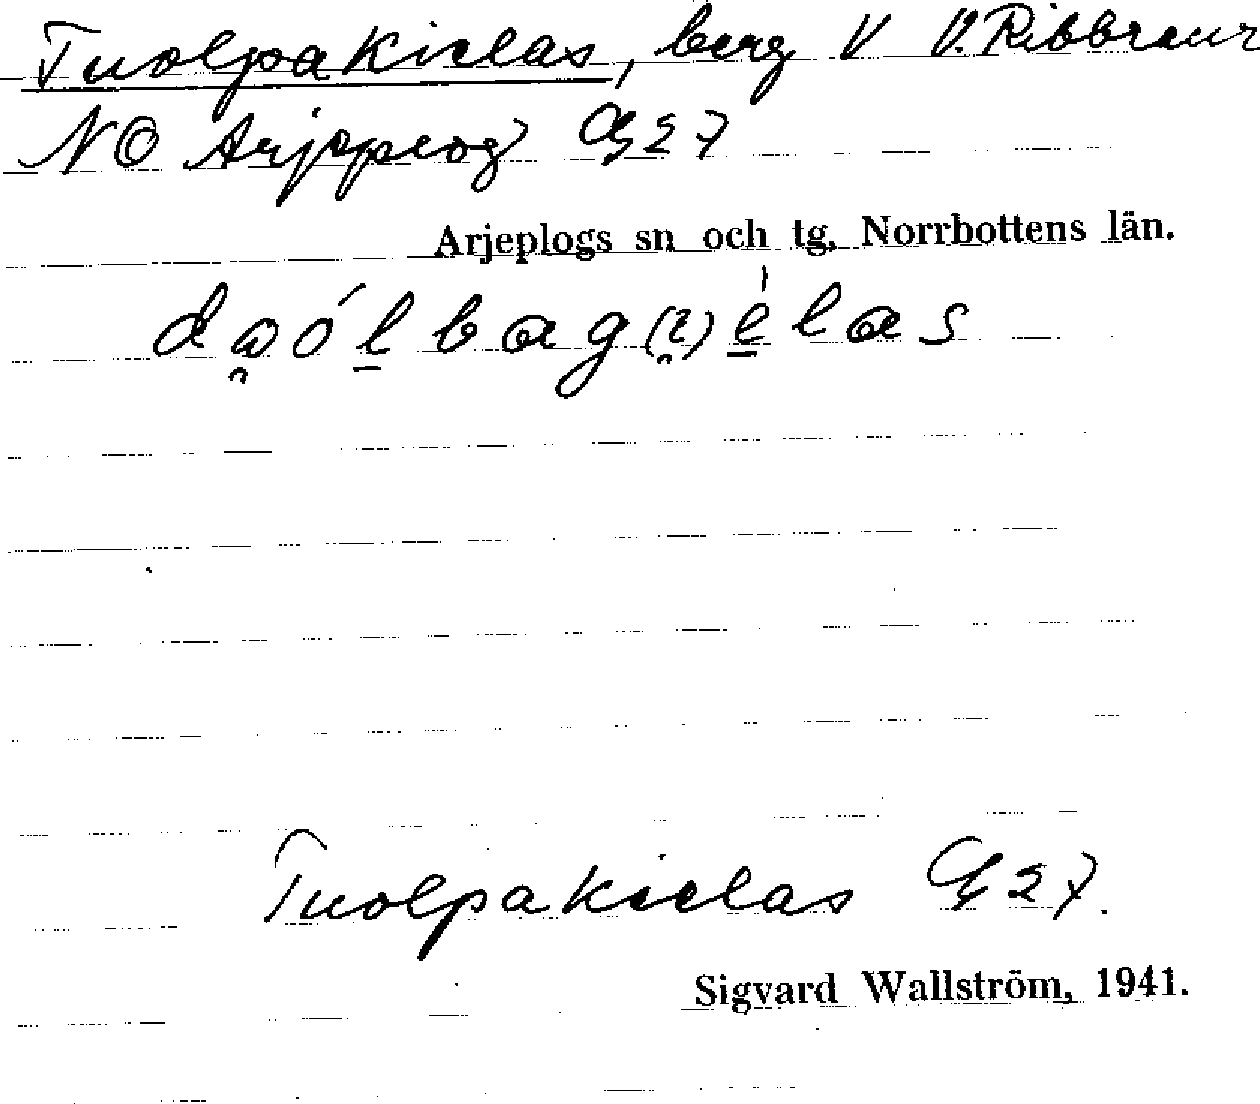 Tuolpakielas, berg V V.Ribbraur
NO Arjeplog G27
Arjeplogs sn och tg, Norrbottens län.
Tuolpakielas G 27.
Sigvard Wallström, 1941.